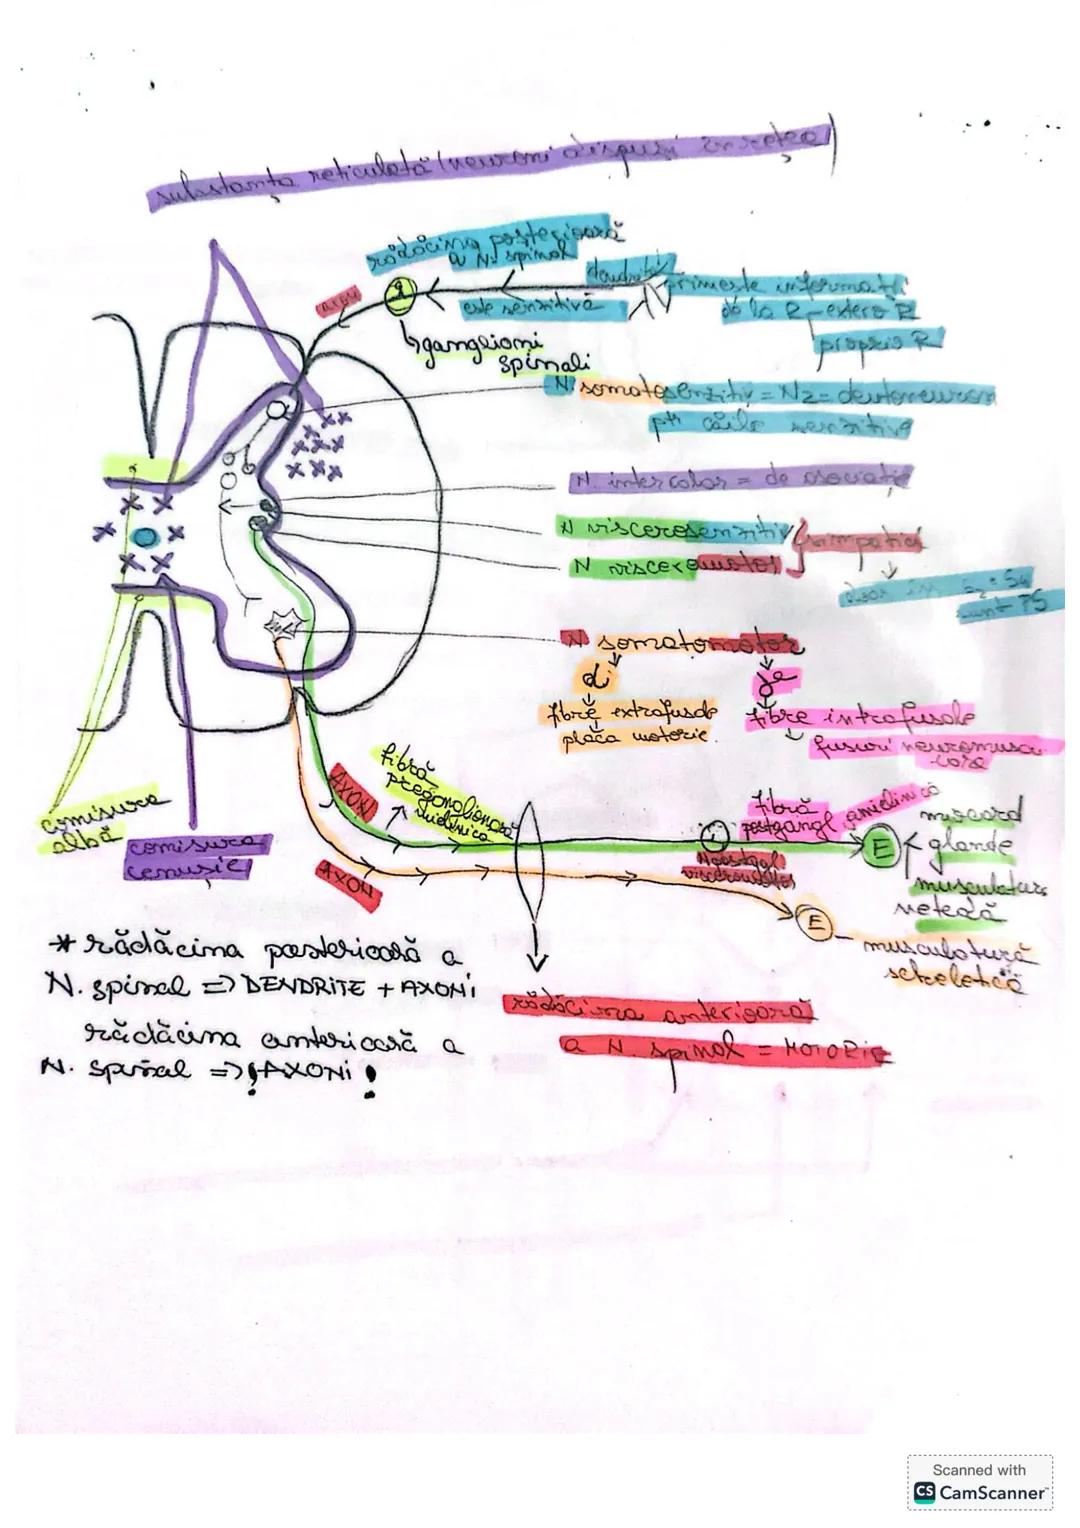 substanța reticulată (neuroni dispuși în rețea)
rădăcina posterioară
a N. spinal
dendrite
axon
g
este senzitivă
primește informații
de la R-extero R
proprio R
↳ganglioni
spinali
N somatosenzitiv = N2 = deutoneuron
pt căile senzitive
N. intercalar = de asociație
N viscerosenzitiv
N visceromotor
simpatici
doar în S2-S4
sunt PS
N somatomotor
di
je
fibre extrafusale
placa motorie.
fibre intrafusale
fusuri neuromuscu
lare
comisura
albă
comisura
cenușie
AXON
fibră
preganglionară
mielinică
fibră amielinică
postgangl
N postggl
visceromotor
E
miocard
glande
musculatură
netedă
AXON
E
musculatură
scheletică
* rădăcina posterioară a
N. spinal => DENDRITE + AXONI
rădăcina anterioară a
N. spinal => ! AXONI !
rădăcina anterioară
a N. spinal = MOTORIE
Scanned with
CS CamScanner